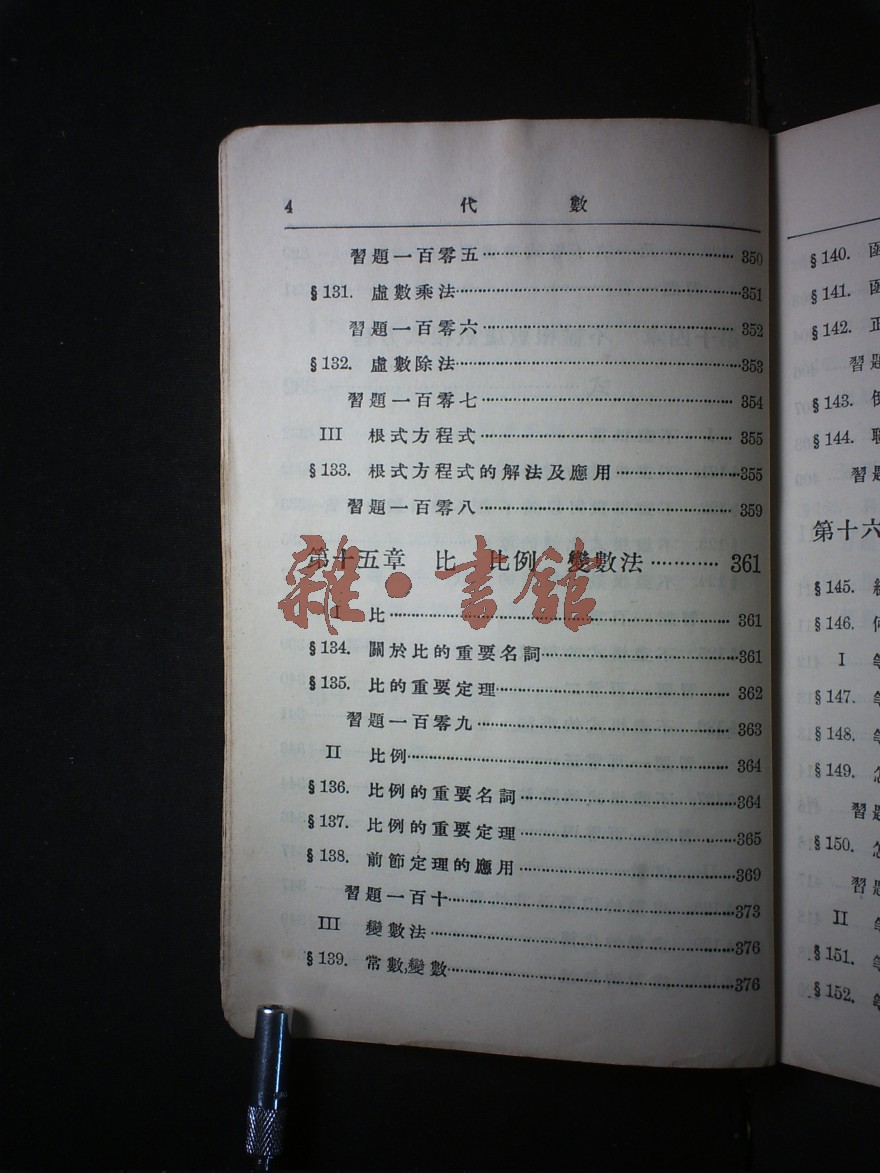 4 代數
習題一百零五 350
§131. 虛數乘法 351
習題一百零六 352
§132. 虛數除法 353
習題一百零七 354
III 根式方程式 355
§133. 根式方程式的解法及應用 355
習題一百零八 359
第十五章 比 比例 變數法 361
I 比 361
§134. 關於比的重要名詞 361
§135. 比的重要定理 362
習題一百零九 363
II 比例 364
§136. 比例的重要名詞 364
§137. 比例的重要定理 365
§138. 前節定理的應用 369
習題一百十 373
III 變數法 376
§139. 常數,變數 376
雜·書館
§140. 函
§141. 函
§142. 正
習題
§143.
§144.
習題
第十六
§145.
§146. 何
I 等
§147. 等
§148. 等
§149. 怎
習題
§150. 怎
習題
II 等
§151. 等
§152. 等